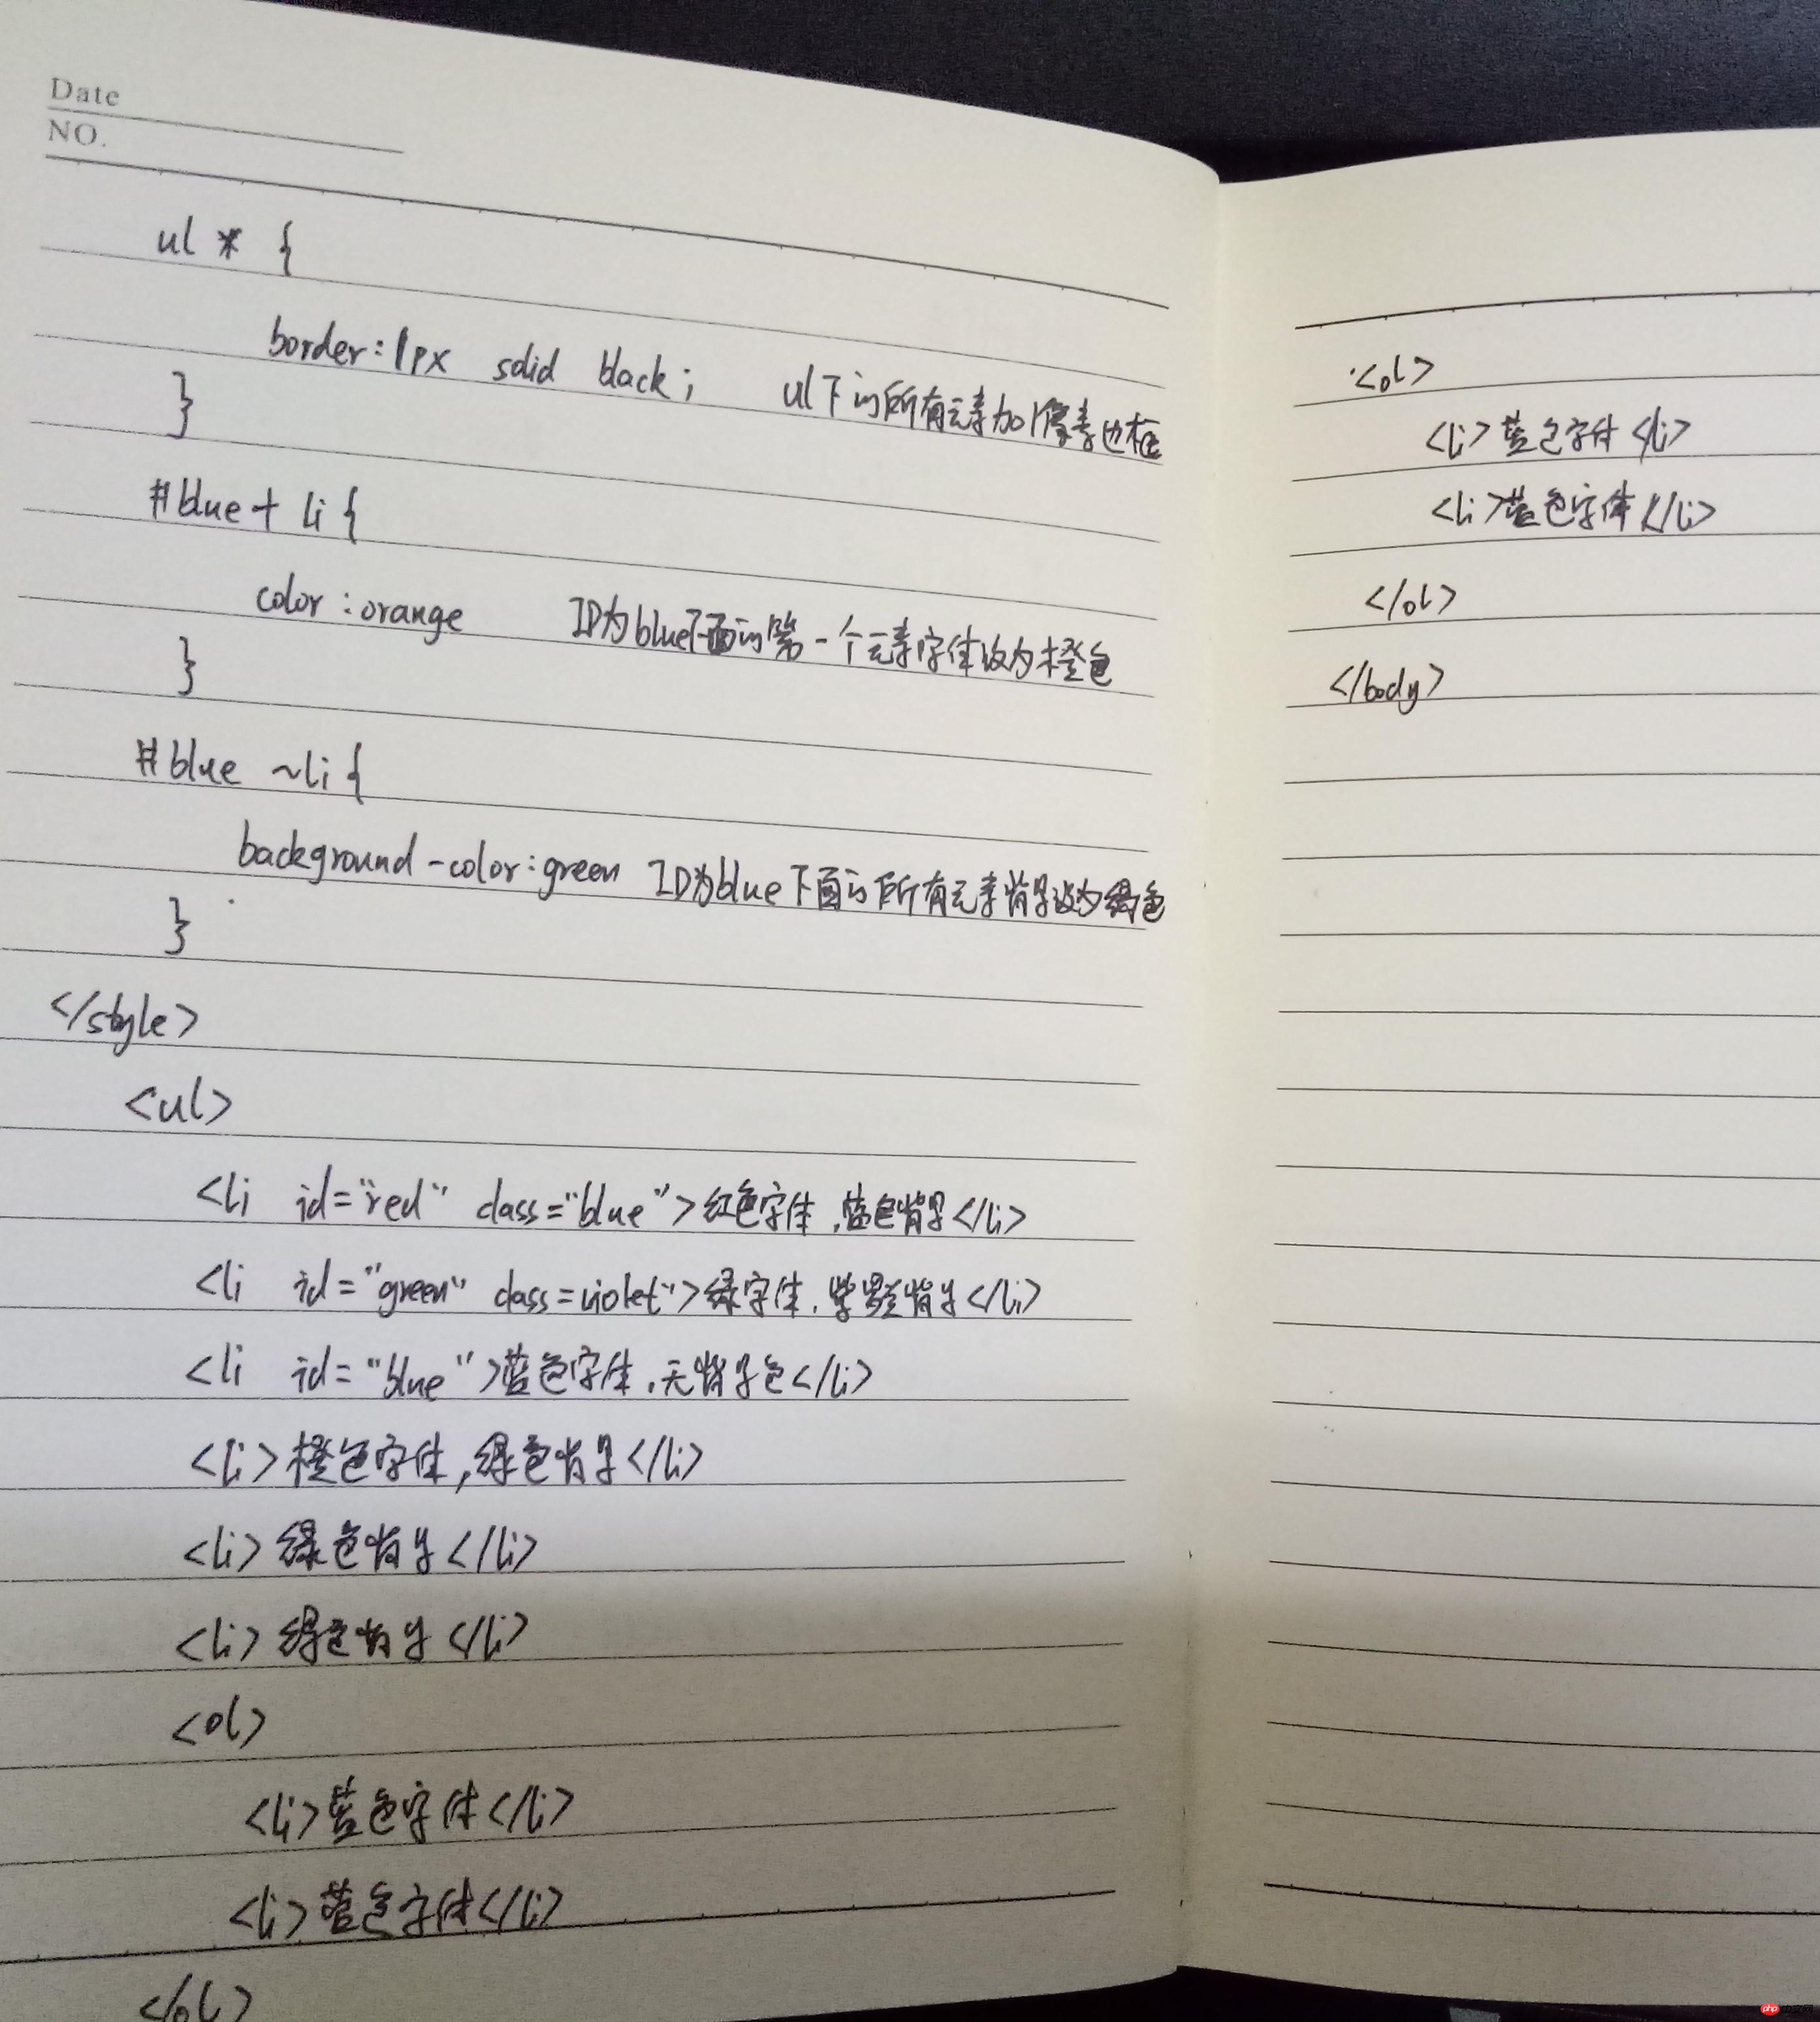 Date
NO.
ul * {
border:1px solid black; ul下的所有元素加1像素边框
}
#blue + li {
color:orange ID为blue下面的第一个元素字体设为橙色
}
#blue ~li {
background-color:green ID为blue下面的所有元素背景设为绿色
}
</style>
<ul>
<li id="red" class="blue">红色字体,蓝色背景</li>
<li id="green" class=violet">绿字体,紫罗兰背景</li>
<li id="blue">蓝色字体,无背景色</li>
<li>橙色字体,绿色背景</li>
<li>绿色背景</li>
<li>绿色背景</li>
<ol>
<li>蓝色字体</li>
<li>蓝色字体</li>
</ol>
<ol>
<li>蓝色字体</li>
<li>蓝色字体</li>
</ol>
</body>
php